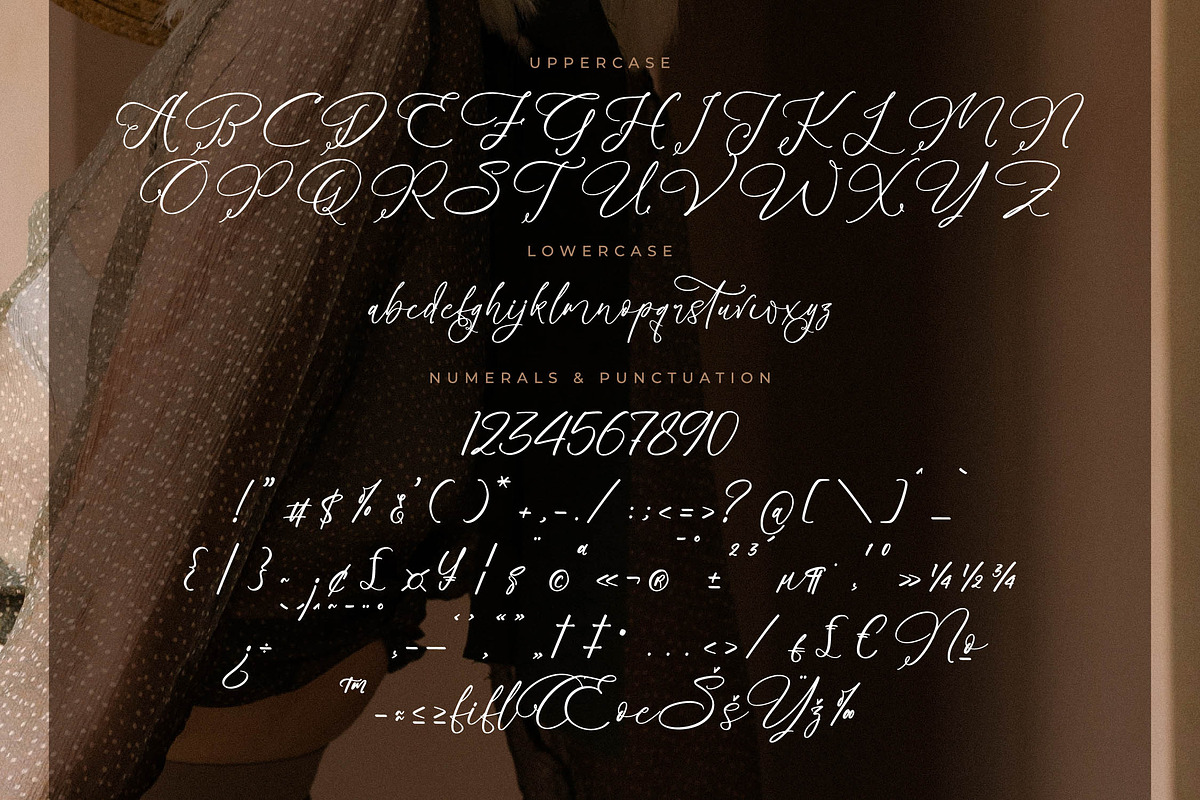 UPPERCASE
ABCDEFGHIJKLMN
OPQRSTUVWXYZ
LOWERCASE
abcdefghijklmnopqrstuvwxyz
NUMERALS & PUNCTUATION
1234567890
!"#$%&'()*+,-./:;<=>?@[\]^_`
{|}~¡¢£¤¥¦§¨©ª«¬®¯°±²³´µ¶·¸¹º»¼½¾
¿÷ ˋˊˆ˜¯¨˚ ‚–—‘’‚“”„†‡•…‹›⁄ƒ£€№
™−≈≤≥fiflŒœŠšŸž‰